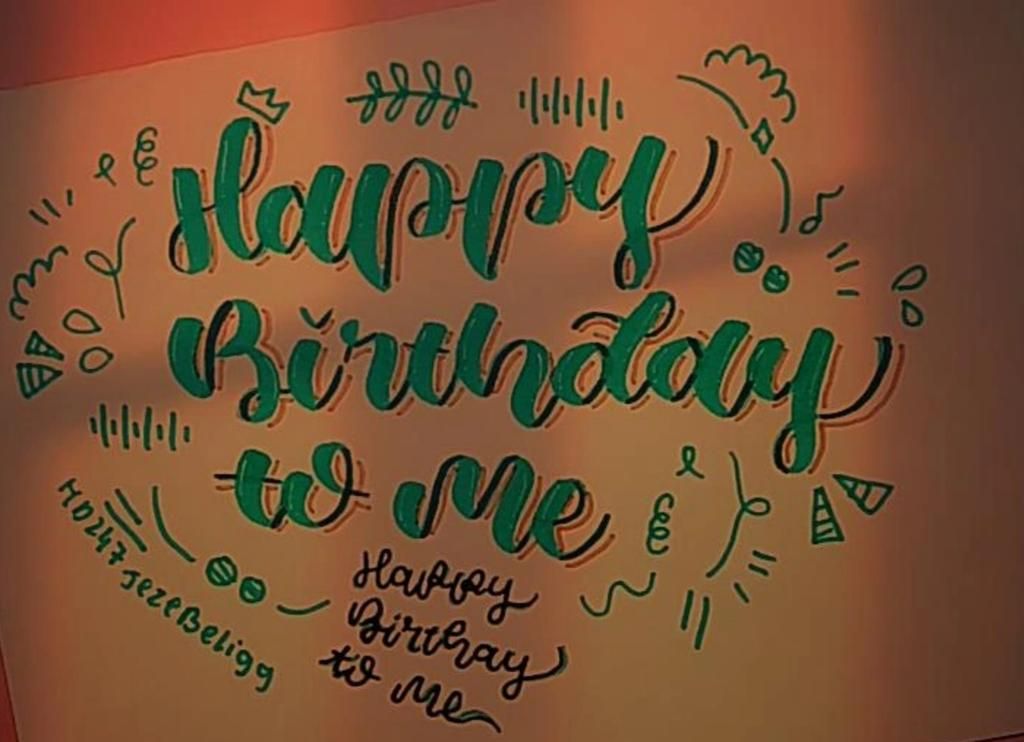 Happy
Birthday
to me
HD247JezeBeligg
Happy
Birthay
to me